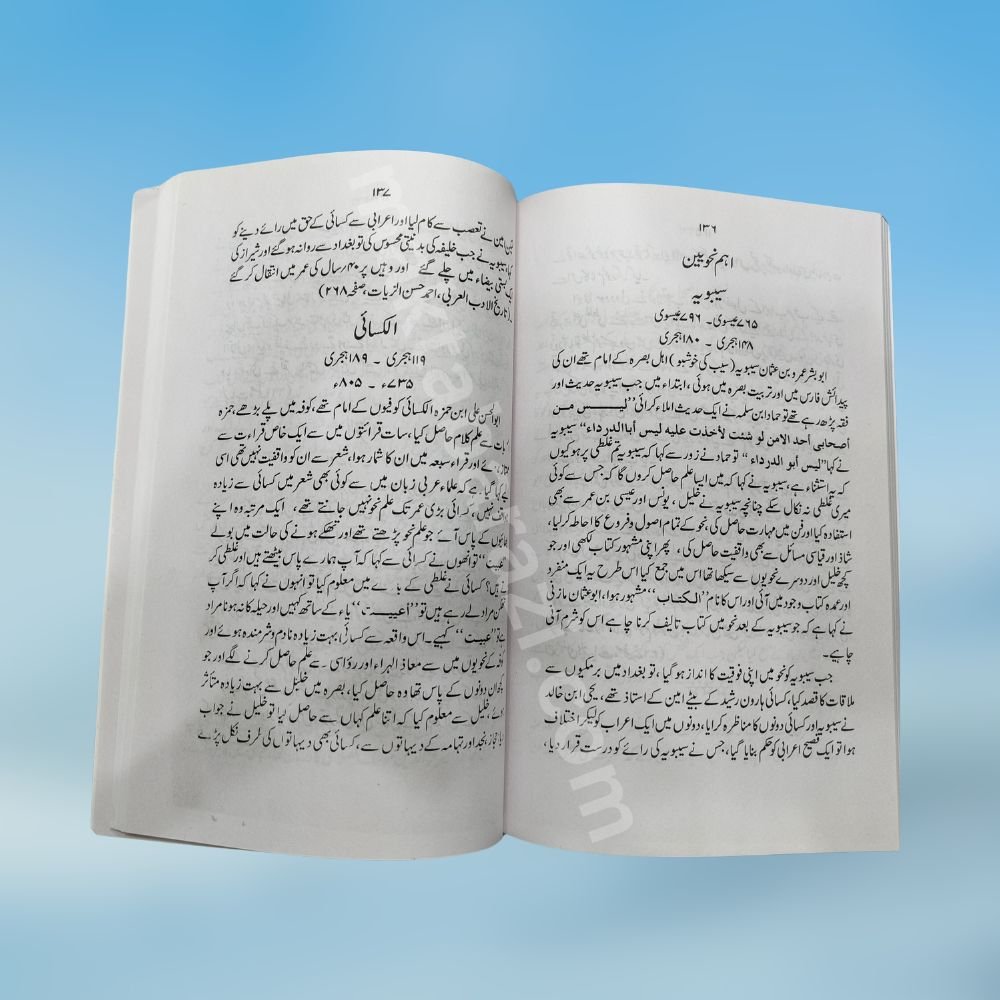 ۱۳۶
اہم نحویین
سیبویہ
۷۶۵عیسوی۔ ۷۹۶عیسوی
۱۴۸ہجری ۔ ۱۸۰ہجری
ابو بشر عمرو بن عثمان سیبویہ (سیب کی خوشبو) اہل بصرہ کے امام تھے ان کی
پیدائش فارس میں اور تربیت بصرہ میں ہوئی، ابتداء میں جب سیبویہ حدیث اور
فقہ پڑھ رہے تھے تو حماد ابن سلمہ نے ایک حدیث املاء کرائی ”لیــــس من
أصحابی أحد الامن لو شئت لأخذت علیه لیس أباالدرداء“ سیبویہ
نے کہا ”لیس أبو الدرداء“ تو حماد نے زور سے کہا کہ سیبویہ تم غلطی پر ہو کیوں
کہ یہ استثناء ہے، سیبویہ نے کہا کہ میں ایسا علم حاصل کروں گا کہ جس سے کوئی
میری غلطی نہ نکال سکے چنانچہ سیبویہ نے خلیل، یونس اور عیسی بن عمر سے بھی
استفادہ کیا اور فن میں مہارت حاصل کی، نحو کے تمام اصول و فروع کا احاطہ کرلیا،
شاذ اور قیاسی مسائل سے بھی واقفیت حاصل کی، پھر اپنی مشہور کتاب لکھی اور جو
کچھ خلیل اور دوسرے نحویوں سے سیکھا تھا اس میں جمع کیا اس طرح یہ ایک منفرد
اور عمدہ کتاب وجود میں آئی اور اس کا نام ”الکتاب“ مشہور ہوا، ابوعثمان مازنی
نے کہا ہے کہ جو سیبویہ کے بعد نحو میں کتاب تالیف کرنا چاہے اس کو شرم آنی
چاہیے۔
جب سیبویہ کو نحو میں اپنی فوقیت کا اندازہ ہو گیا، تو بغداد میں برمکیوں سے
ملاقات کا قصد کیا، کسائی ہارون رشید کے بیٹے امین کے استاذ تھے، یحیی ابن خالد
نے سیبویہ اور کسائی دونوں کا مناظرہ کرایا، دونوں میں ایک اعراب کو لیکر اختلاف
ہوا تو ایک فصیح اعرابی کو حکم بنایا گیا، جس نے سیبویہ کی رائے کو درست قرار دیا،
۱۳۷
امین نے تعصب سے کام لیا اور اعرابی سے کسائی کے حق میں رائے دینے کو
کہا، سیبویہ نے جب خلیفہ کی بدنیتی محسوس کی تو بغداد سے روانہ ہو گئے اور شیراز کی
ایک بستی بیضاء میں چلے گئے اور وہیں پر ۴۰؍سال کی عمر میں انتقال کر گئے
۔(تاریخ الادب العربی، احمد حسن الزیات، صفحہ ۲۶۸)
الکسائی
۱۱۹ہجری ۔ ۱۸۹ہجری
۷۳۵ء ۔ ۸۰۵ء
ابوالحسن علی ابن حمزہ الکسائی کوفیوں کے امام تھے، کوفہ میں پلے بڑھے، حمزہ
سے علم کلام حاصل کیا، سات قرائتوں میں سے ایک خاص قراءت سے
اور قراء سبعہ میں ان کا شمار ہوا، شعر سے ان کو واقفیت نہیں تھی اسی
کہا گیا ہے کہ علماء عربی زبان میں سے کوئی بھی شعر میں کسائی سے زیادہ
نہیں، کسائی بڑی عمر تک علم نحو نہیں جانتے تھے، ایک مرتبہ وہ اپنے
کے پاس آئے جو علم نحو پڑھتے تھے اور تھکے ہونے کی حالت میں بولے
”عییت“ تو انھوں نے کسائی سے کہا کہ آپ ہمارے پاس بیٹھتے ہیں اور غلطی کر
ہیں؟ کسائی نے غلطی کے بارے میں معلوم کیا تو انہوں نے کہا کہ اگر آپ
مراد لے رہے ہیں تو ”أعییــت“ یاء کے ساتھ کہیں اور حیلہ کا نہ ہونا مراد
”عییت“ کہیے۔ اس واقعہ سے کسائی بہت زیادہ نادم و شرمندہ ہوئے اور
کے نحویوں میں سے معاذ الہراء اور رؤاسی۔ سے علم حاصل کرنے لگے اور جو
ان دونوں کے پاس تھا وہ حاصل کیا، بصرہ میں خلیل سے بہت زیادہ متاثر
خلیل سے معلوم کیا کہ اتنا علم کہاں سے حاصل کیا تو خلیل نے جواب
حجاز، نجد اور تہامہ کے دیہاتوں سے، کسائی بھی دیہاتوں کی طرف نکل پڑے